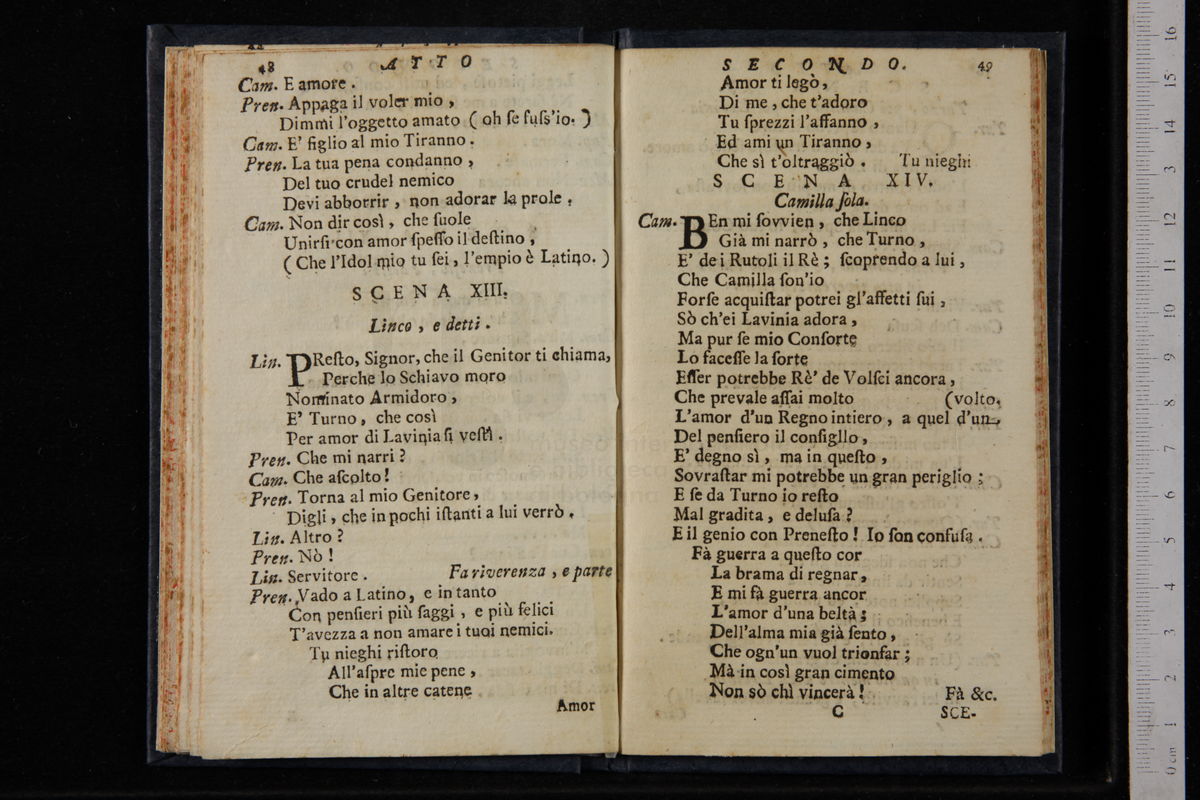 48 ATTO
Cam. E amore .
Pren. Appaga il voler mio ,
Dimmi l'oggetto amato ( oh ſe fuſs'io. )
Cam. E' figlio al mio Tiranno .
Pren. La tua pena condanno ,
Del tuo crudel nemico
Devi abborrir , non adorar la prole .
Cam. Non dir così , che ſuole
Unirſi con amor ſpeſſo il deſtino ,
( Che l'Idol mio tu ſei , l'empio è Latino. )
SCENA XIII.
Linco , e detti .
Lin. PReſto, Signor, che il Genitor ti chiama,
Perche lo Schiavo moro
Nominato Armidoro ,
E' Turno , che così
Per amor di Lavinia ſi veſtì .
Pren. Che mi narri ?
Cam. Che aſcolto !
Pren. Torna al mio Genitore ,
Digli , che in pochi iſtanti a lui verrò .
Lin. Altro ?
Pren. Nò !
Lin. Servitore . Fa riverenza , e parte
Pren. Vado a Latino, e in tanto
Con penſieri più ſaggi , e più felici
T'avezza a non amare i tuoi nemici.
Tu nieghi riſtoro
All'aſpre mie pene ,
Che in altre catene
Amor
SECONDO. 49
Amor ti legò ,
Di me , che t'adoro
Tu ſprezzi l'affanno ,
Ed ami un Tiranno ,
Che sì t'oltraggiò . Tu nieghi
SCENA XIV.
Camilla ſola.
Cam. BEn mi ſovvien , che Linco
Già mi narrò , che Turno ,
E' de i Rutoli il Rè ; ſcoprendo a lui ,
Che Camilla ſon'io
Forſe acquiſtar potrei gl'affetti ſui ,
Sò ch'ei Lavinia adora ,
Ma pur ſe mio Conſorte
Lo faceſſe la ſorte
Eſſer potrebbe Rè' de Volſci ancora ,
Che prevale aſſai molto (volto.
L'amor d'un Regno intiero , a quel d'un
Del penſiero il conſigllo ,
E' degno sì , ma in queſto ,
Sovraſtar mi potrebbe un gran periglio ;
E ſe da Turno io reſto
Mal gradita , e deluſa ?
E il genio con Preneſto ! Io ſon confuſa .
Fà guerra a queſto cor
La brama di regnar ,
E mi fà guerra ancor
L'amor d'una beltà ;
Dell'alma mia già ſento ,
Che ogn'un vuol trionfar ;
Mà in così gran cimento
Non sò chì vincerà ! Fà &c.
C SCE-